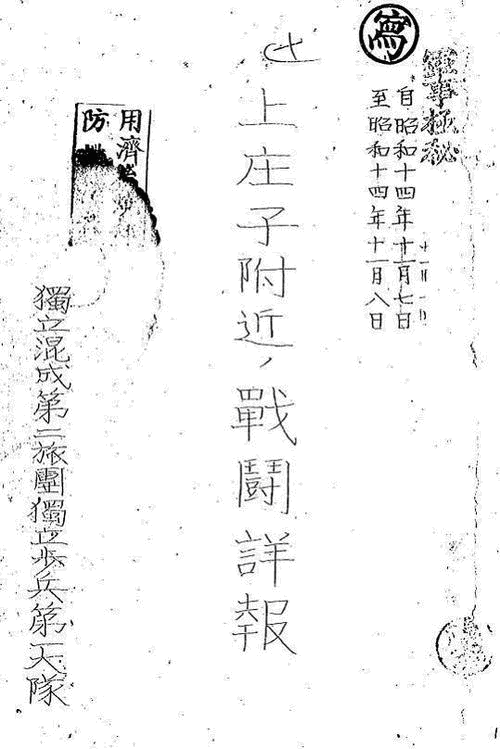 軍事極秘
自昭和十四年十一月七日
至昭和十四年十一月八日
寫
上庄子附近ノ戰鬪詳報
用濟
防
獨立混成第二旅團獨立步兵第一大隊